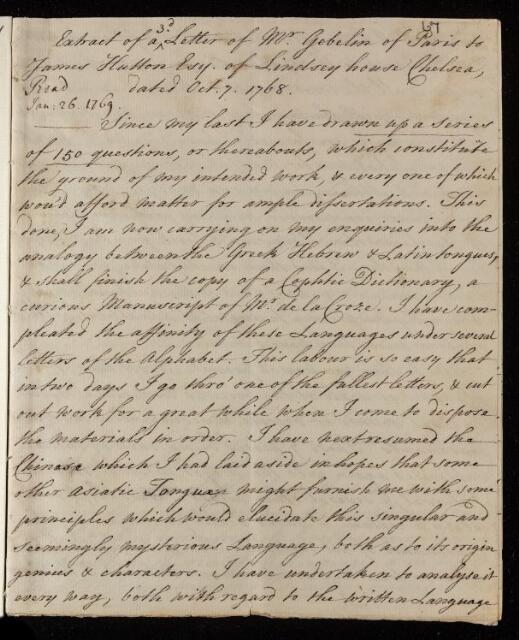 67
Extract of a 3.d Letter of Mr. Gebelin of Paris to
James Hutton Esq. of Lindsey house Chelsea,
Read
dated Oct. 7. 1768.
Jan: 26. 1769.
Since my last I have drawn up a series
of 150 questions, or thereabouts, which constitute
the ground of my intended work, & every one of which
wou'd afford matter for ample dissertations. This
done, I am now carrying on my enquiries into the
analogy between the Greek Hebrew & Latin tongues,
& shall finish the copy of a Cophtic Dictionary, a
curious Manuscript of Mr. de la Croze. I have com-
pleated the affinity of these Languages under several
letters of the Alphabet. This labour is so easy that
in two days I go thro' one of the fullest letters, & cut
out work for a great while when I come to dispose
the materials in order. I have next resumed the
Chinese which I had laid aside in hopes that some
other Asiatic Tongue might furnish me with some
principles which would elucidate this singular and
seemingly mysterious Language, both as to its origin
genius & characters. I have undertaken to analyse it
every way, both with regard to the written Language